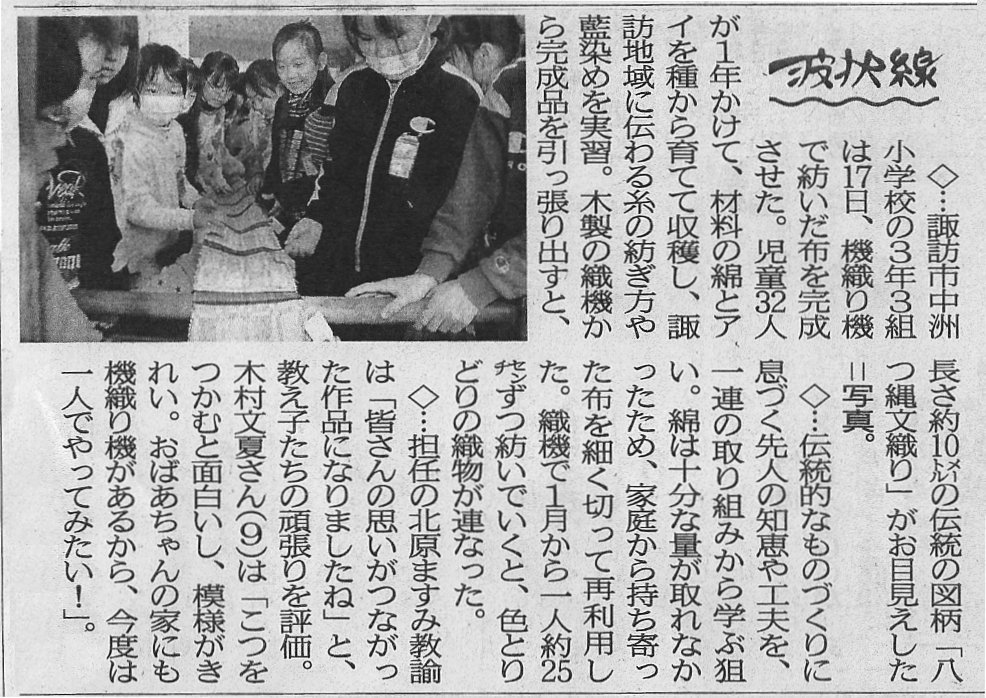 波状線
◇…諏訪市中洲
小学校の3年3組
は17日、機織り機
で紡いだ布を完成
させた。児童32人
が1年かけて、材料の綿とア
イを種から育てて収穫し、諏
訪地域に伝わる糸の紡ぎ方や
藍染めを実習。木製の織機か
ら完成品を引っ張り出すと、
長さ約10メートルの伝統の図柄「八
つ縄文織り」がお目見えした
＝写真。
◇…伝統的なものづくりに
息づく先人の知恵や工夫を、
一連の取り組みから学ぶ狙
い。綿は十分な量が取れなか
ったため、家庭から持ち寄っ
た布を細く切って再利用し
た。織機で1月から一人約25
センチずつ紡いでいくと、色とり
どりの織物が連なった。
◇…担任の北原ますみ教諭
は「皆さんの思いがつながっ
た作品になりましたね」と、
教え子たちの頑張りを評価。
木村文夏さん(9)は「こつを
つかむと面白いし、模様がき
れい。おばあちゃんの家にも
機織り機があるから、今度は
一人でやってみたい！」。